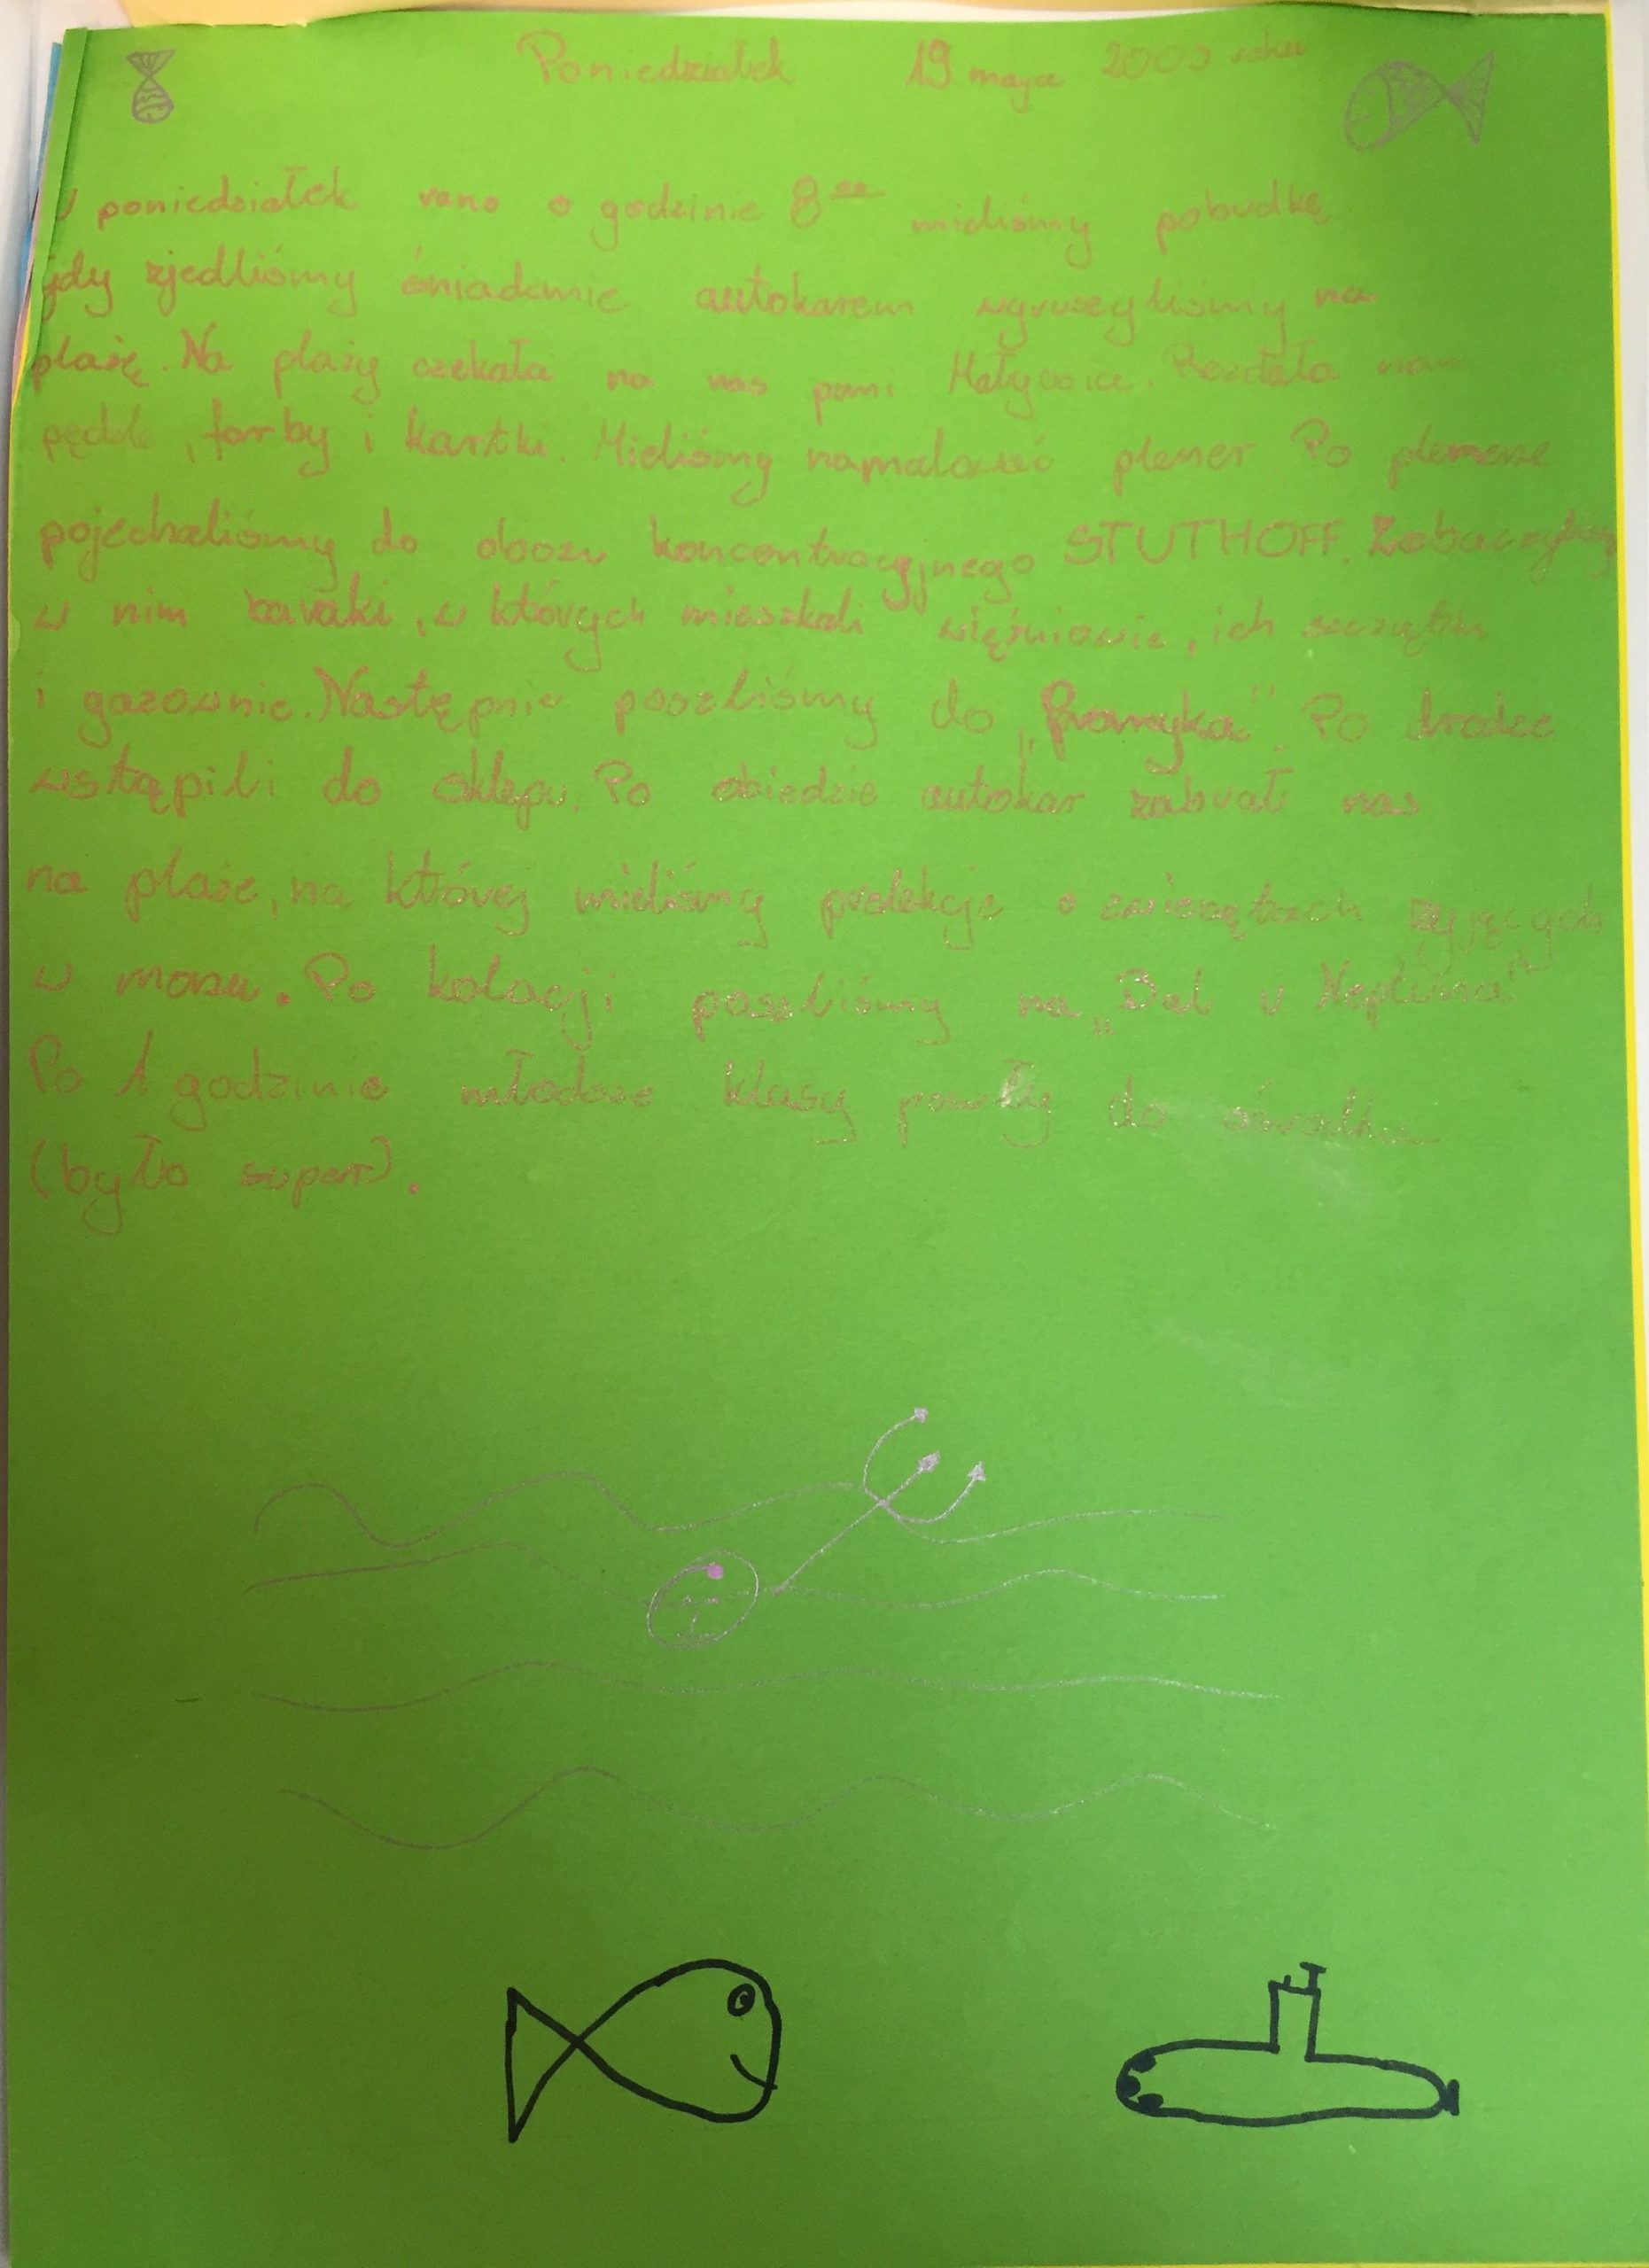 Poniedziałek 19 maja 2003 roku
W poniedziałek rano o godzinie 8⁰⁰ mieliśmy pobudkę
gdy zjedliśmy śniadanie autokarem wyruszyliśmy na
plażę. Na plaży czekała na nas pani Rozdała nam
pędzle, farby i kartki. Mieliśmy namalować plener Po plenerze
pojechaliśmy do obozu koncentracyjnego STUTHOFF. Zobaczyliśmy
w nim baraki, w których mieszkali więźniowie, ich szczątki
i gazownie. Następnie poszliśmy do „Promyka". Po drodze
wstąpili do sklepu. Po obiedzie autokar zabrał nas
na plaże, na której mieliśmy prelekcje o zwierzętach żyjących
w morzu. Po kolacji poszliśmy na „Bal u Neptuna"
Po 1 godzinie młodsze klasy poszły do ośrodka
(było super).